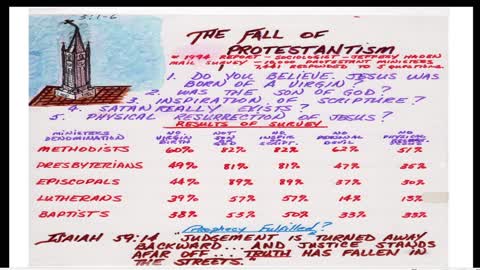 5:1-6
THE FALL OF
PROTESTANTISM
* 1994 REPORT - SOCIOLOGIST - JEFFERY HADEN
MAIL SURVEY - 10,000 PROTESTANT MINISTERS
7,441 RESPONDED TO 5 QUESTIONS
1. DO YOU BELIEVE JESUS WAS
BORN OF A VIRGIN?
2. WAS THE SON OF GOD?
3. INSPIRATION OF SCRIPTURE?
4. SATAN REALLY EXISTS?
5. PHYSICAL RESURRECTION OF JESUS?
RESULTS OF SURVEY
MINISTERS DENOMINATION NO VIRGIN BIRTH NOT SON GOD NO INSPIR SCRIPT. NO PERSONAL DEVIL NO PHYSICAL
METHODISTS 60% 82% 82% 62% 51%
PRESBYTERIANS 49% 81% 81% 47% 35%
EPISCOPALS 44% 89% 89% 37% 30%
LUTHERANS 39% 57% 57% 14% 13%
BAPTISTS 38% 53% 50% 33% 33%
Prophecy Fulfilled?
ISAIAH 59:14 "JUDGEMENT IS TURNED AWAY
BACKWARD... AND JUSTICE STANDS
AFAR OFF... TRUTH HAS FALLEN
IN THE STREETS."